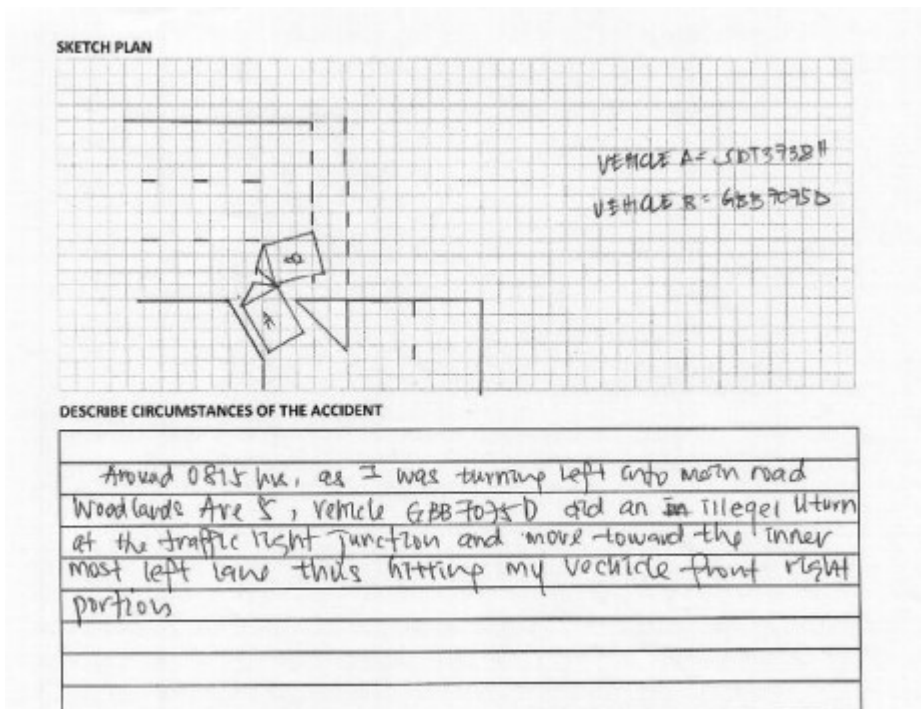 SKETCH PLAN
VEHICLE A = SDT3738H
VEHICLE B = GBB7075D
B
A
DESCRIBE CIRCUMSTANCES OF THE ACCIDENT
Around 0815 hrs, as I was turning left into main road
Woodlands Ave 5, vehicle GBB7075D did an illegel Uturn
at the traffic light junction and move toward the inner
most left lane thus hitting my vechicle front right
portion